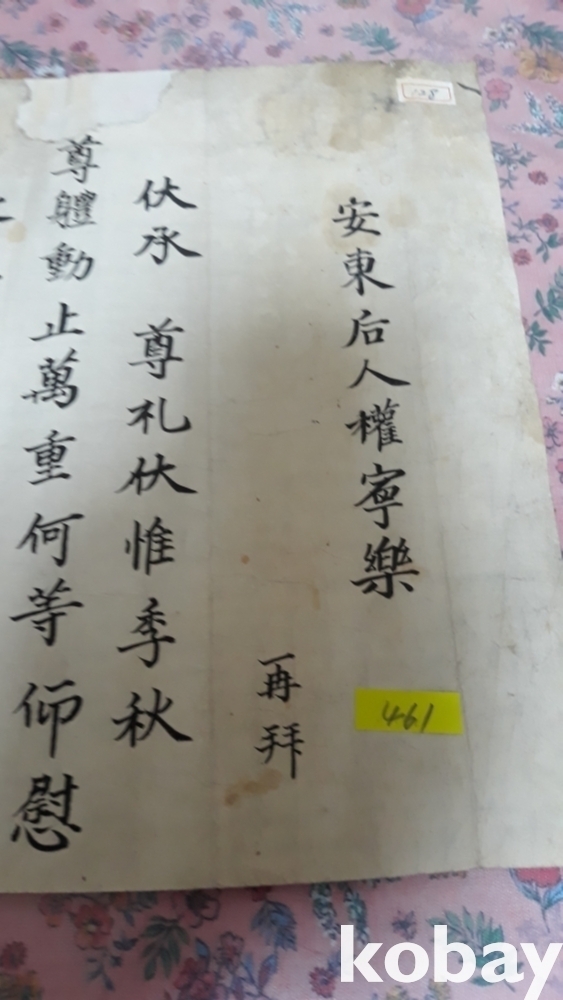 138
安東后人權寧樂
再拜
461
伏承 尊札伏惟季秋
尊體動止萬重何等仰慰
kobay